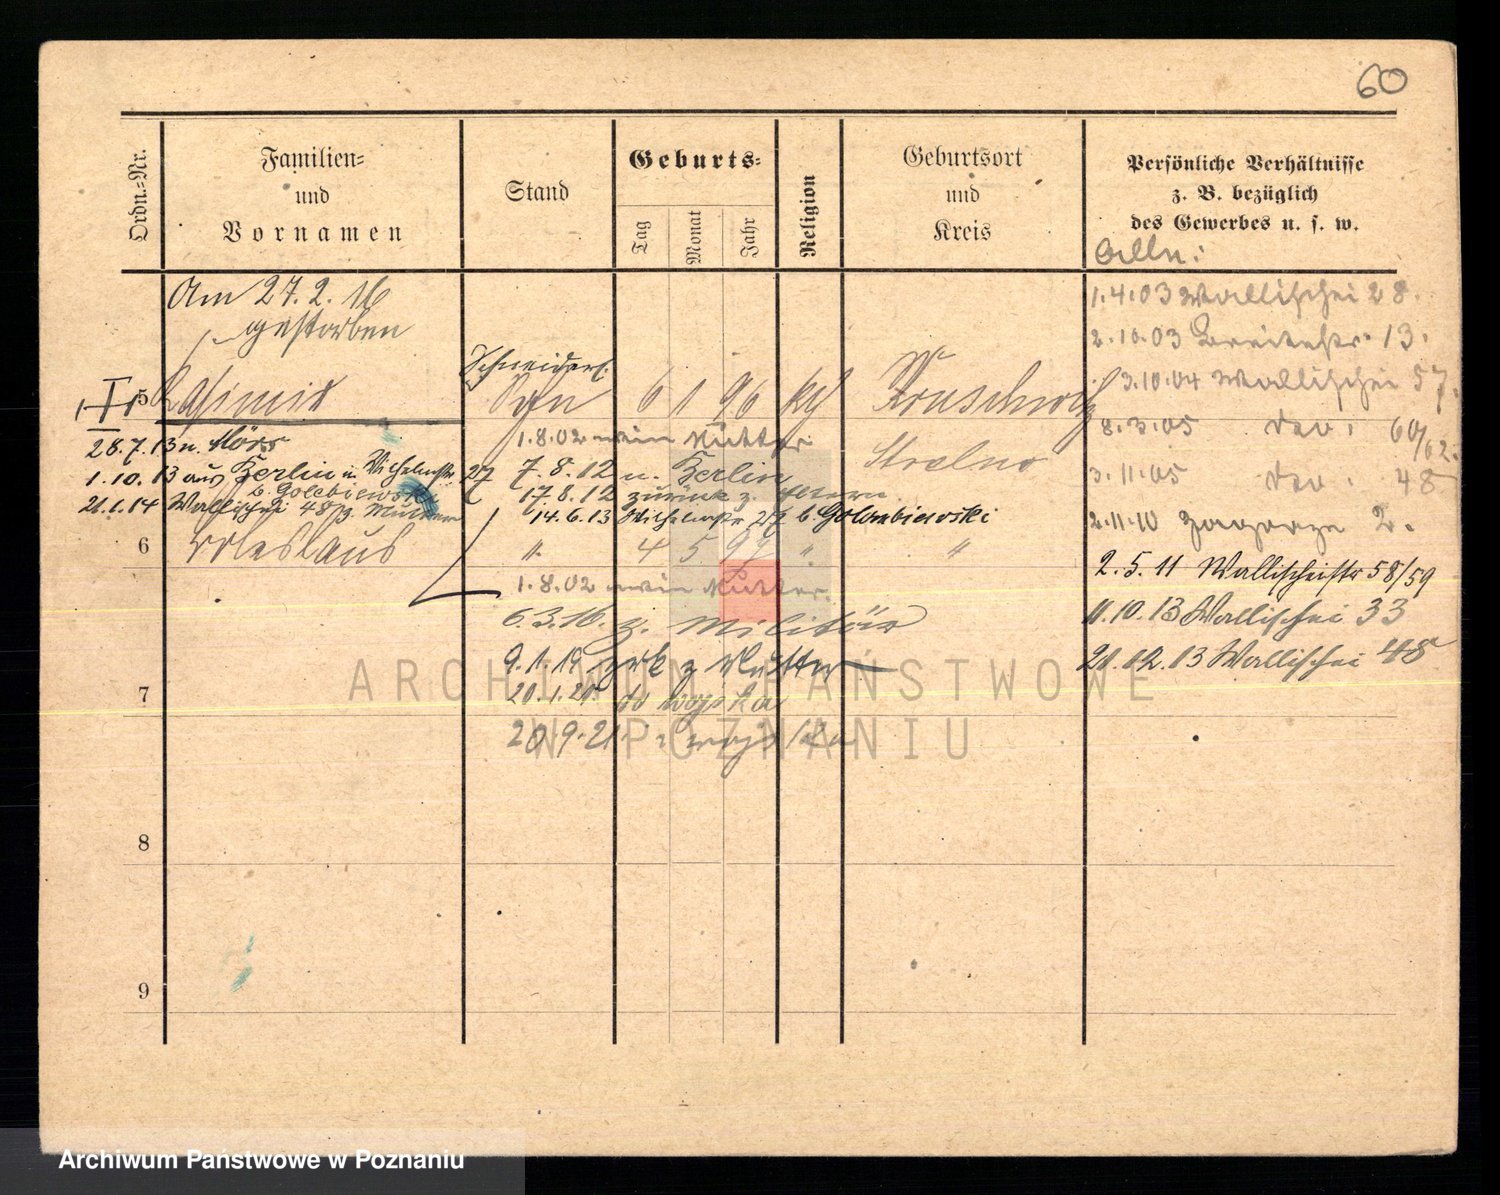 60
Ordn.=Nr.
Familien=
und
Vornamen
Stand
Geburts=
Tag
Monat
Jahr
Religion
Geburtsort
und
Kreis
Persönliche Verhältnisse
z. B. bezüglich
des Gewerbes u. s. w.
Am 27. 2. 16
gestorben
Schneiderl.
5 Casimir Sohn 6 1 96 kth Kruschwitz
Strelno
28. 7. 13 n. Mörs
1. 10. 13 aus Berlin n. Wilhelmstr. 27
b. Golebiewski
21. 1. 14 Wallischei 48 z. Mutter
1. 8. 02 Mutter
7. 8. 12 n. Berlin
17. 8. 12 zurück z. Eltern
14. 6. 13 Wilhelmstr 27 b. Golombiewski
6 Boleslaus " 4 5 97 " "
1. 8. 02 Mutter.
6. 3. 16. z. Militär
9. 1. 19 zrk z Mutter
20. 1. 20 do wojska
20. 9. 21
7
8
9
1. 4. 03 Wallischei 28.
2. 10. 03 Breitestr. 13.
3. 10. 04 Wallischei 57.
8. 3. 05 60/62.
3. 11. 05 48
2. 11. 10 Zagorze 2.
2. 5. 11 Wallischeistr 58/59
11. 10. 13 Wallischei 33
21. 12. 13 Wallischei 48
ARCHIWUM PAŃSTWOWE
W POZNANIU
Archiwum Państwowe w Poznaniu